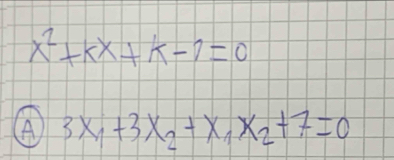 x²+kx+k-1=0
Ⓐ 3x₁+3x₂+x₁x₂+7=0